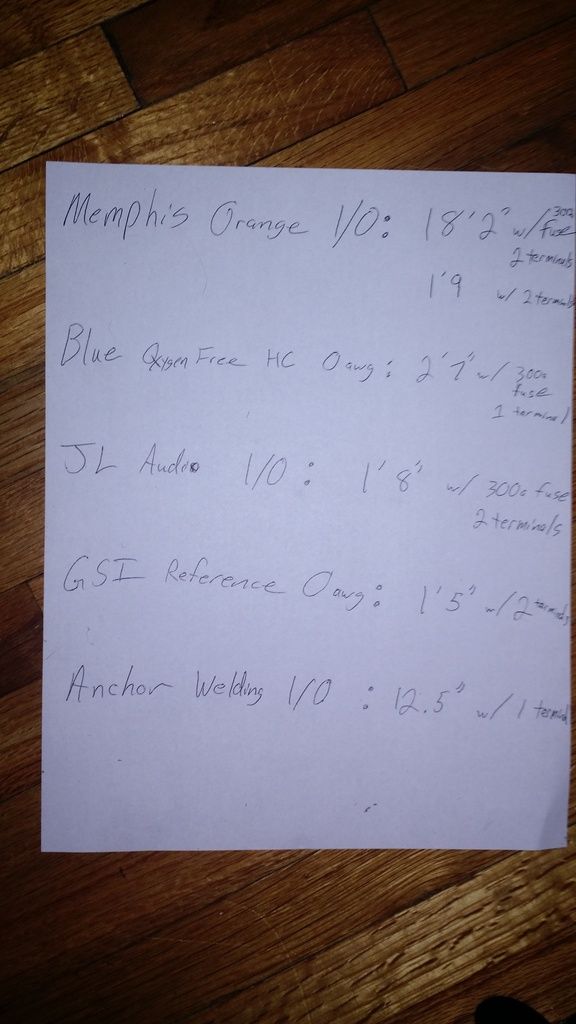 Memphis Orange 1/0: 18'2" w/ 300a fuse
2 terminals
1'9 w/ 2 terminals
Blue Oxygen Free HC 0 awg: 2'7" w/ 300a
fuse
1 terminal
JL Audio 1/0: 1'8" w/ 300a fuse
2 terminals
GSI Reference 0 awg: 1'5" w/ 2 terminals
Anchor Welding 1/0: 12.5" w/ 1 terminal